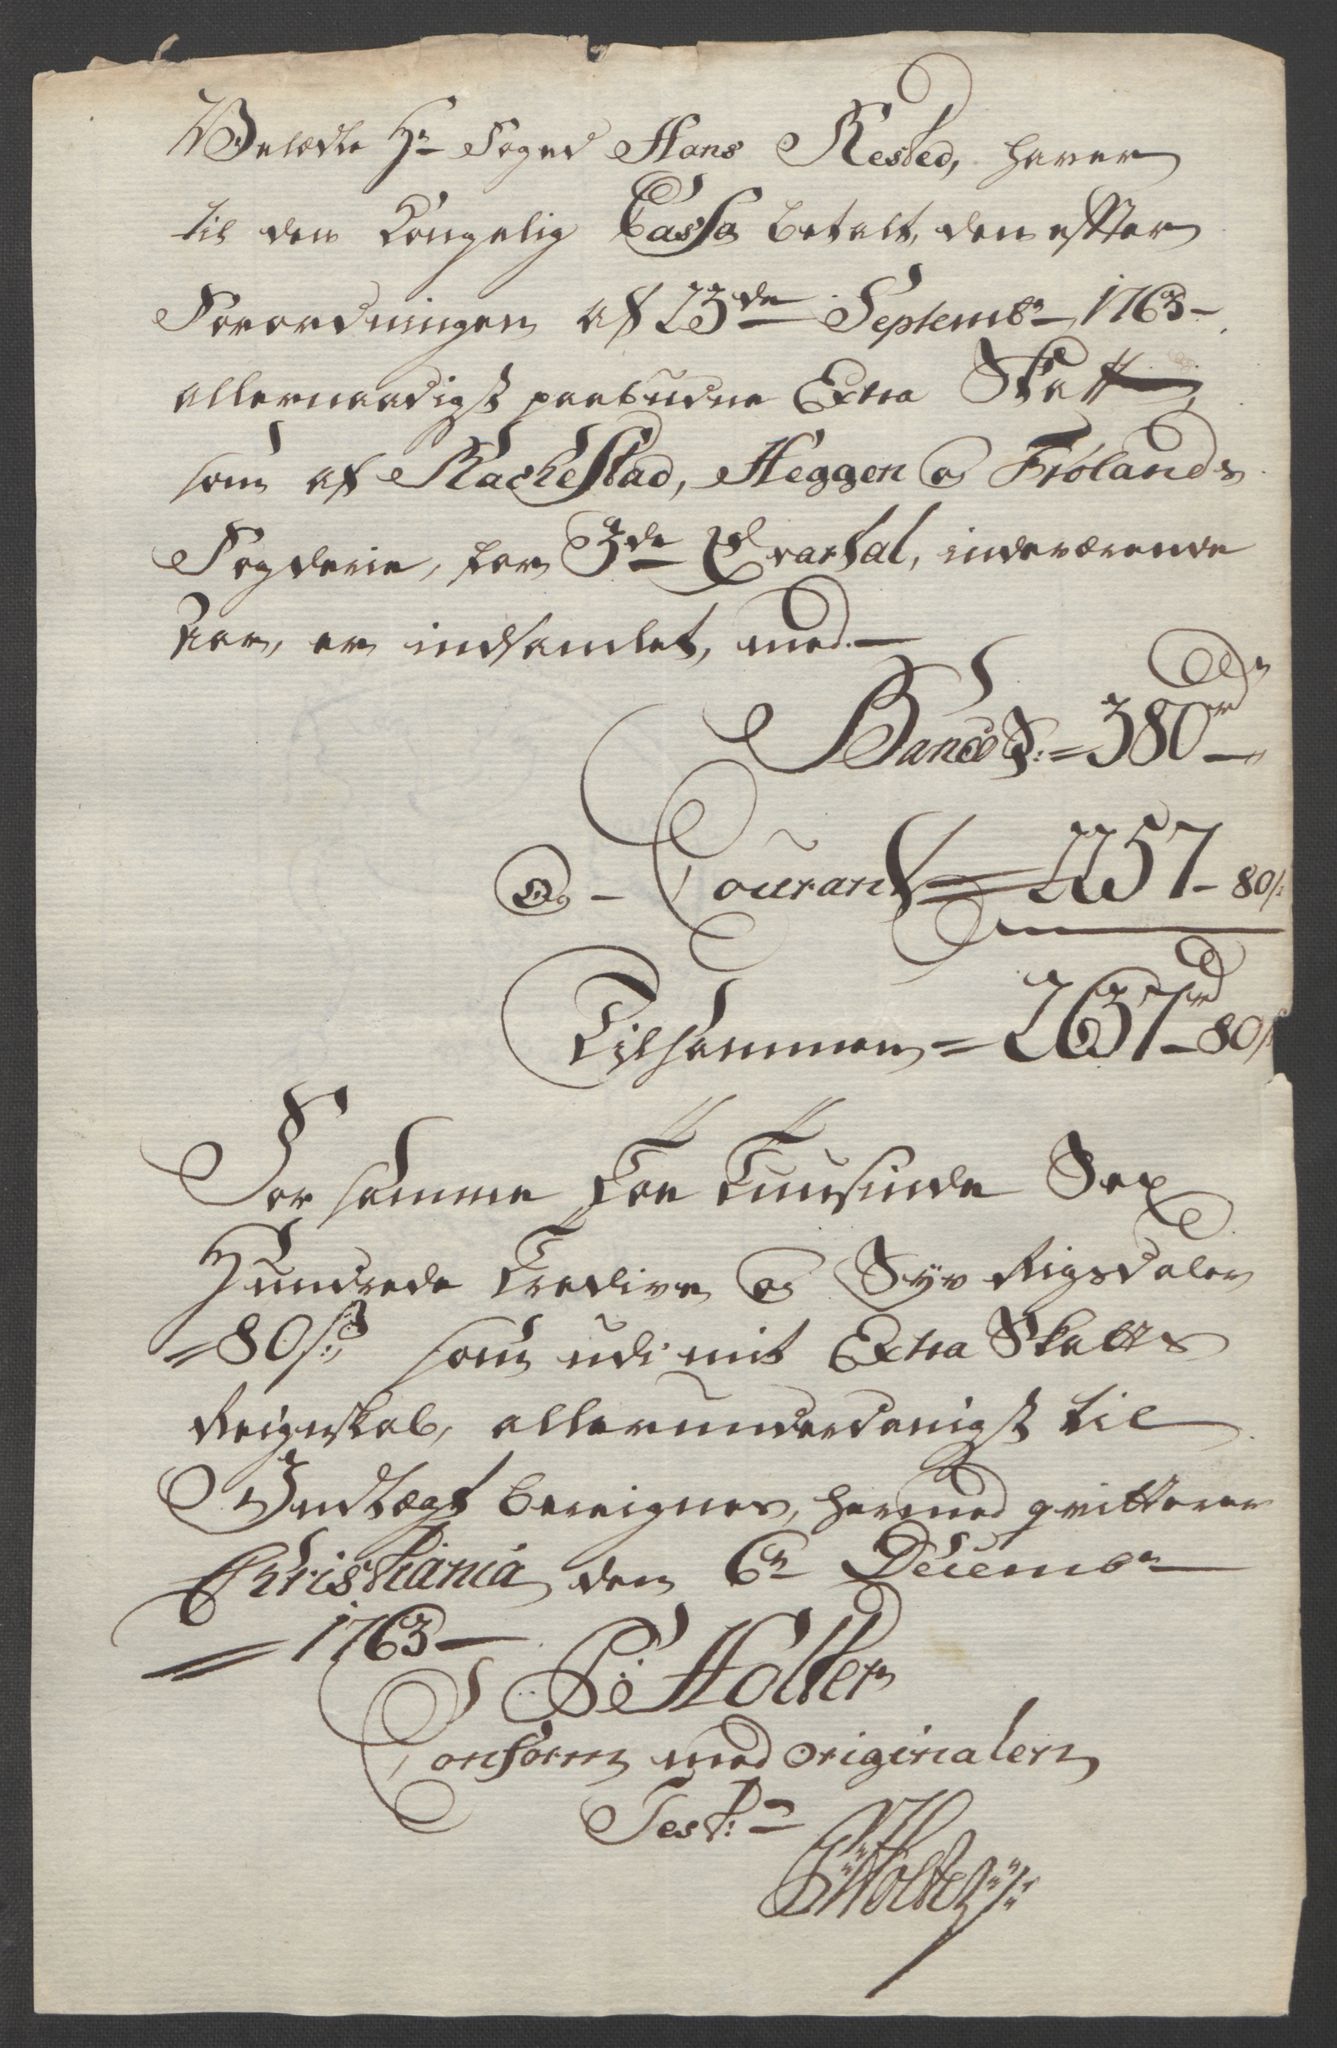 Velædle Hr Foged Hans Rested, haver
til den Kongelig Cassa betalt, den efter
Forordningen af 23de Septembr 1763
allernaadigst paabudne Extra Skatt,
som af Rachestad, Heggen og Frølands
Fogderie, for 3de Qvartal, indeværende
Aar, er indsamlet, med
Banco S: = 380 rd
Og - Courant = 2257 - 80 s:
Tilsammen = 2637 rd 80 s
For samme Toe Tuusinde Sex
Hundrede Tredive og Syv Rigsdaler
= 80 s: som udi mit Extra Skatts
Reigenskab, allerunderdanigst til
Indtægt bereignes, hermed qvitterer
Christiania den 6te Decembr
= 1763
P: Holter
Conform med originalen
Test:
P: Holter